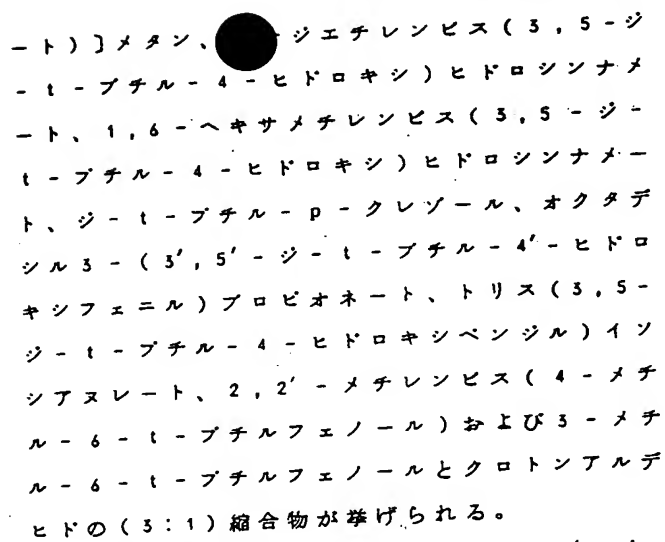 ート)〕メタン、ジエチレンビス(3,5-ジ
-t-ブチル-4-ヒドロキシ)ヒドロシンナメ
ート、1,6-ヘキサメチレンビス(3,5-ジ-
t-ブチル-4-ヒドロキシ)ヒドロシンナメー
ト、ジ-t-ブチル-p-クレゾール、オクタデ
シル3-(3′,5′-ジ-t-ブチル-4′-ヒドロ
キシフェニル)プロピオネート、トリス(3,5-
ジ-t-ブチル-4-ヒドロキシベンジル)イソ
シアヌレート、2,2′-メチレンビス(4-メチ
ル-6-t-ブチルフェノール)および3-メチ
ル-6-t-ブチルフェノールとクロトンアルデ
ヒドの(3:1)縮合物が挙げられる。